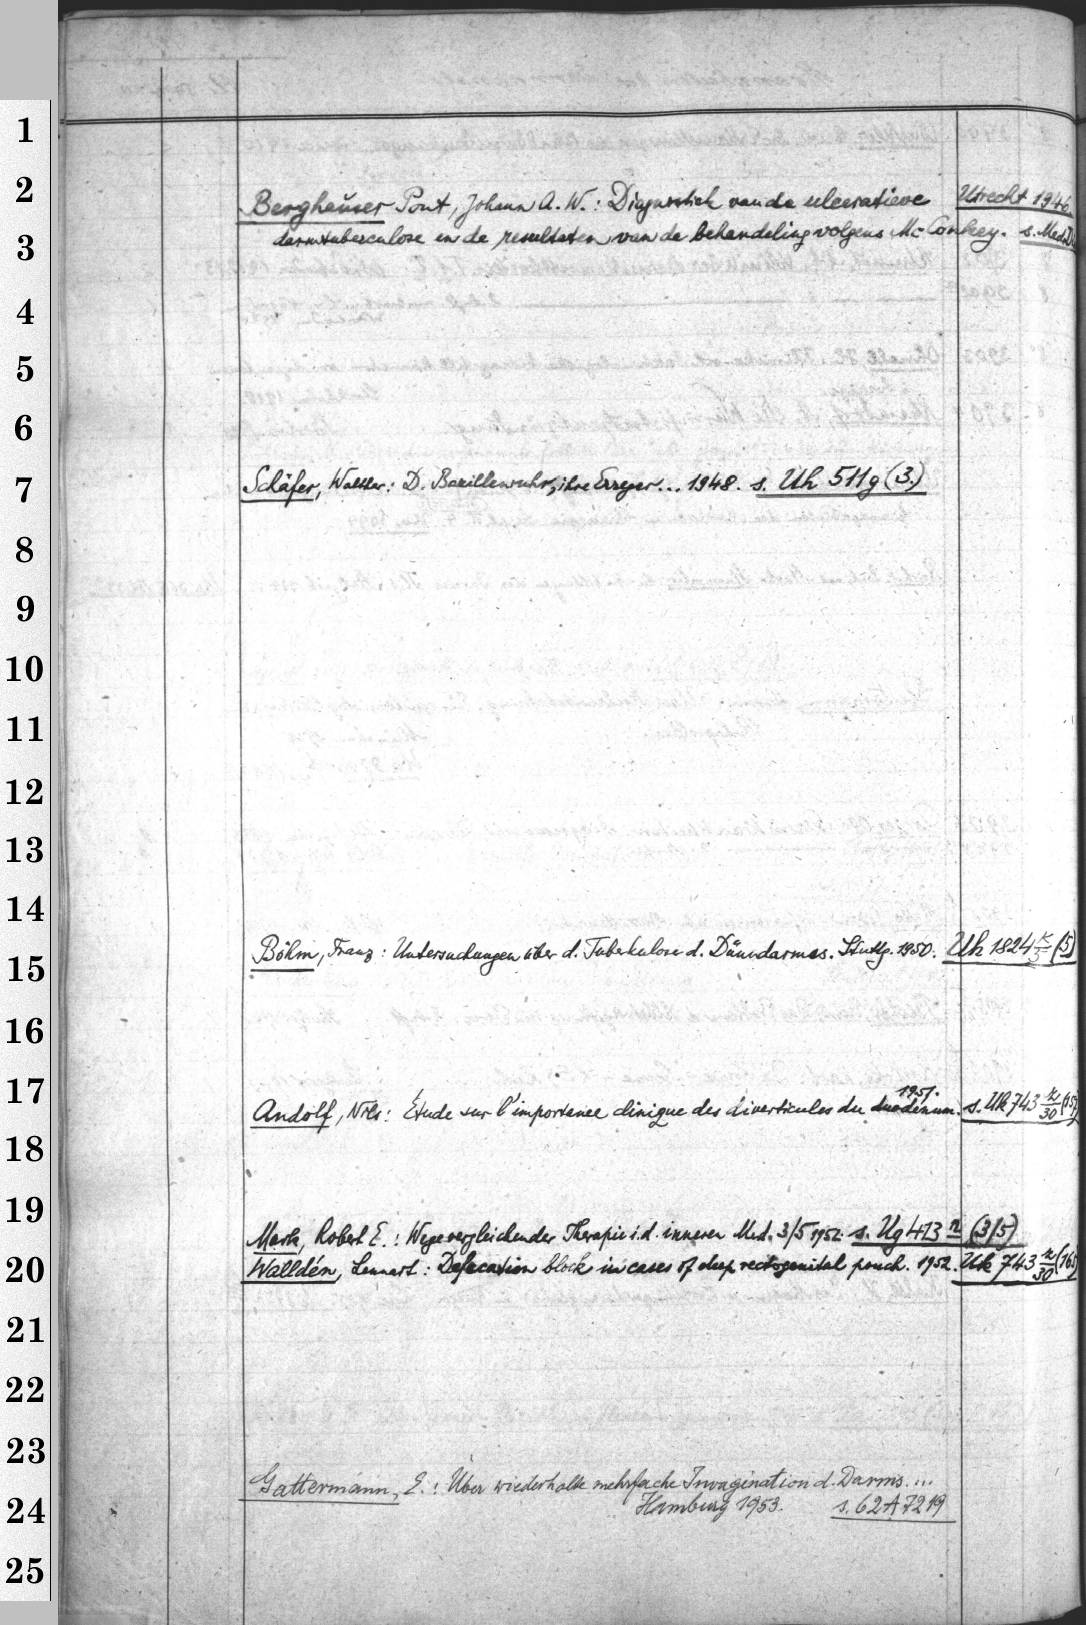 1
2
Berghauser Pont, Johann A. W.: Diagnostiek van de ulceratieve Utrecht 1946.
3
darmtuberculose en de resultaten van de behandeling volgens Mc Conkey. s. Med.D
4
5
6
7
Schäfer, Walter: D. Bazillenruhr, ihre Erreger... 1948. s. Uh 511g (3.)
8
9
10
11
12
13
14
15
Böhm, Franz: Untersuchungen über d. Tuberkulose d. Dünndarmes. Stuttg. 1950. Uh 1824 (5)
16
17
1951.
Andolf, Nils: Étude sur l'importance clinique des diverticules du duodénum. s. Uk 743 n/30 (157)
18
19
Mark, Robert E.: Wege vergleichender Therapie i. d. inneren Med. 3/5 1952. s. Ug 413 n (3/5)
20
Walldén, Lennart: Defecation block in cases of deep rectogenital pouch. 1952. Uk 743 n/30 (165)
21
22
23
Gattermann, E.: Über wiederholte mehrfache Invagination d. Darms...
24
Hamburg 1953. s. 62 A 7219
25